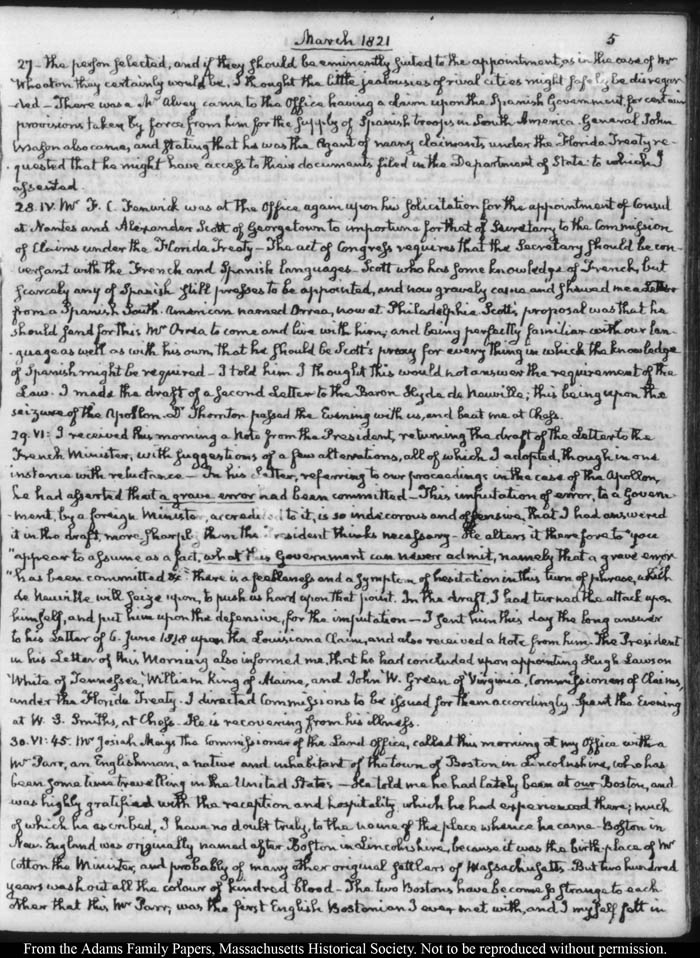 March 1821
5
27 - the person selected, and if they should be eminently suited to the appointment, as in the case of Mr
Wheaton they certainly would be, I thought the little jealousies of rival cities might safely be disregar-
-ded - There was a Mr Alvey came to the Office having a claim upon the Spanish Government, for certain
provisions taken by force from him for the supply of Spanish troops in South America. General John
Mason also came, and stating that he was the Agent of many claimants under the Florida Treaty re-
-quested that he might have access to their documents filed in the Department of State: to which I
assented.
28. IV. Mr F. C. Fenwick was at the Office again upon his solicitation for the appointment of Consul
at Nantes and Alexander Scott of Georgetown to importune for that of Secretary to the Commission
of Claims under the Florida Treaty - The act of Congress requires that the Secretary should be con-
versant with the French and Spanish languages - Scott who has some knowledge of French, but
scarcely any of Spanish still presses to be appointed, and now gravely came and shewed me a Letter
from a Spanish South-American named Orrea, now at Philadelphia. Scott's proposal was that he
should send for this Mr Orrea to come and live with him, and being perfectly familiar with our lan-
-guage as well as with his own, that he should be Scott's proxy for every thing in which the knowledge
of Spanish might be required - I told him I thought this would not answer the requirement of the
Law. I made the draft of a second Letter to the Baron Hyde de Neuville; this being upon the
seizure of the Apollon. Dr Thornton passed the Evening with us, and beat me at Chess.
29. VI: I received this morning a Note from the President, returning the draft of the Letter to the
French Minister, with suggestions of a few alterations, all of which I adopted, though in one
instance with reluctance - In his Letter, referring to our proceedings in the case of the Apollon,
he had asserted that a grave error had been committed - This imputation of error, to a Govern-
-ment, by a foreign Minister, accredited to it, is so indecorous and offensive, that I had answered
it in the draft, more sharply than the President thinks necessary - He alters it therefore to "you
"appear to assume as a fact, what this Government can never admit, namely that a grave error
"has been committed &c" There is a feebleness and a symptom of hesitation in this turn of phrase, which
de Neuville will seize upon, to push us hard upon that point. In the draft, I had turned the attack upon
himself, and put him upon the defensive, for the imputation - I sent him this day the long answer
to his Letter of 6. June 1818 upon the Louisiana Claim, and also received a Note from him. The President
in his Letter of this Morning also informed me, that he had concluded upon appointing Hugh Lawson
White of Tennessee, William King of Maine, and John W. Green of Virginia, Commissioners of Claims,
under the Florida Treaty. I directed Commissions to be issued for them accordingly. Spent the Evening
at W. S. Smith's, at Chess. He is recovering from his illness.
30. VI:45. Mr Josiah Meigs the Commissioner of the Land Office, called this morning at my Office with a
Mr Parr, an Englishman, a native and inhabitant of the town of Boston in Lincolnshire, who has
been some time travelling in the United States - He told me he had lately been at our Boston, and
was highly gratified with the reception and hospitality which he had experienced there; much
of which he ascribed, I have no doubt truly, to the name of the place whence he came. Boston in
New England was originally named after Boston in Lincolnshire, because it was the birth-place of Mr
Cotton the Minister, and probably of many other original settlers of Massachusetts. But two hundred
years wash out all the colour of kindred blood - The two Bostons have become so strange to each
other that this Mr Parr, was the first English Bostonian I ever met with, and I myself felt in
From the Adams Family Papers, Massachusetts Historical Society. Not to be reproduced without permission.